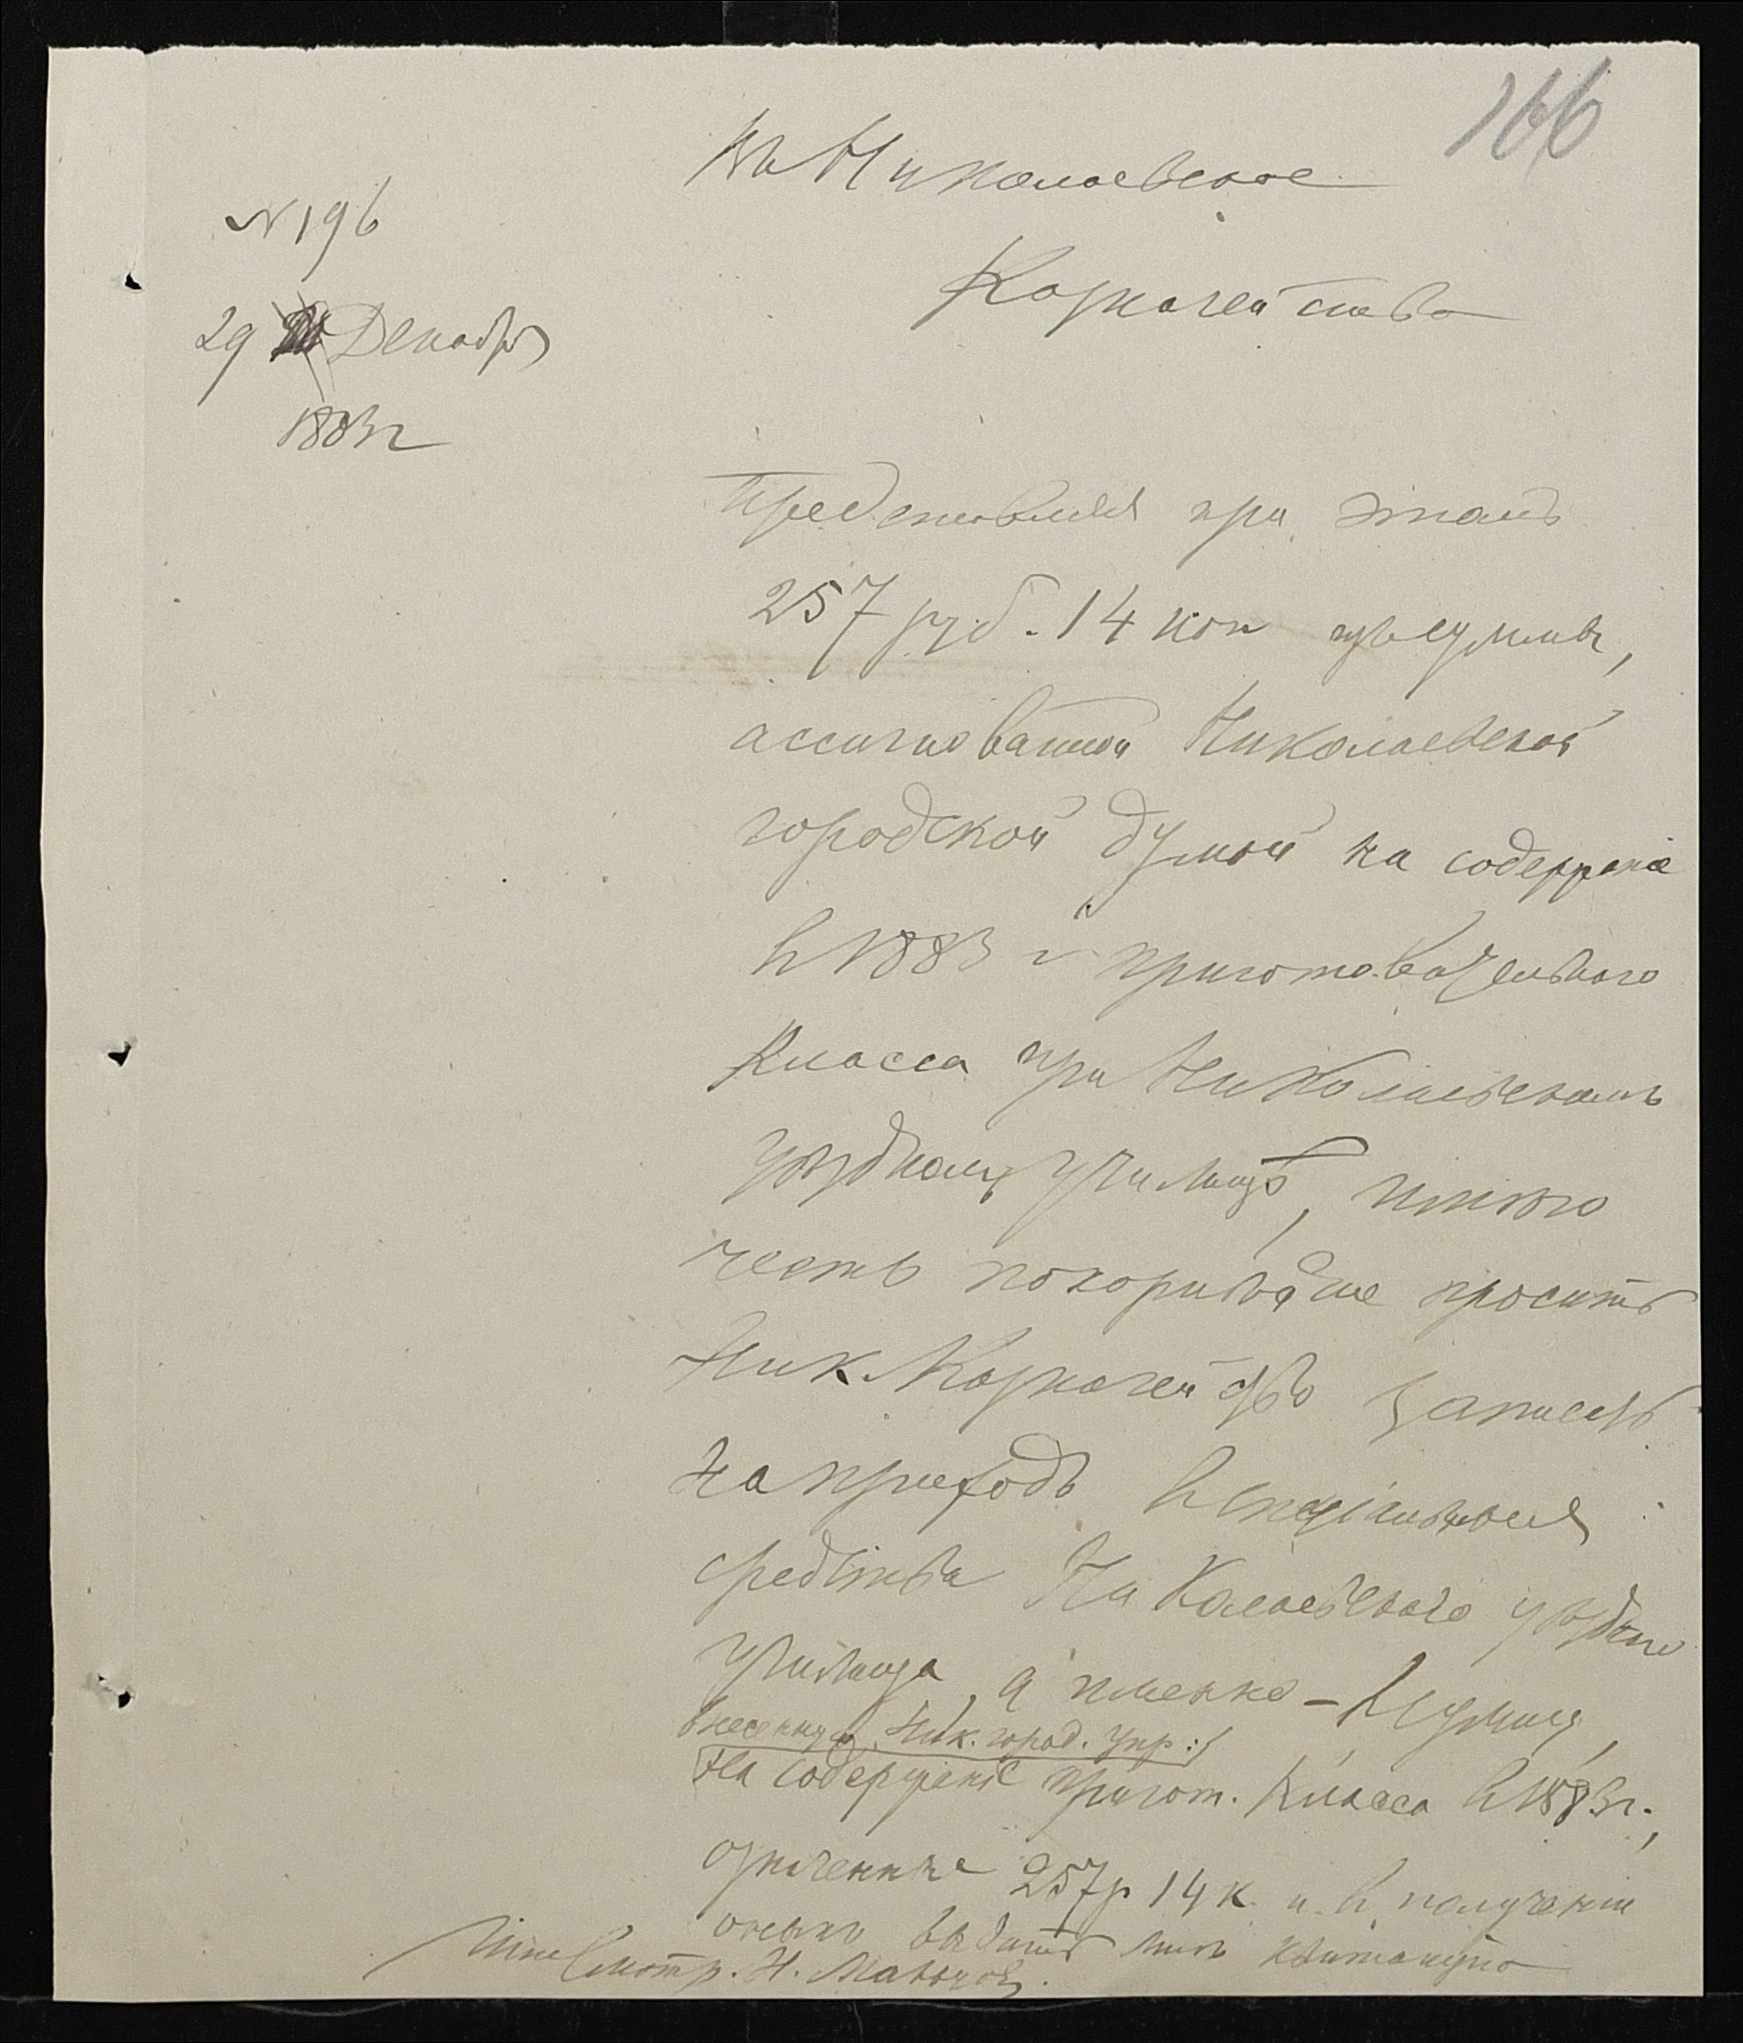 166
Въ Николаевское
Казначейство
N 196
29 Декабря
1883 г
Представляя при этомъ
257 руб. 14 коп изъ суммы,
ассигнованной Николаевской
городской думой на содержаніе
въ 1883 г приготовательного
класса при Николаевскомъ
уѣздномъ училищѣ, имѣю
честь покорнѣйше просить
Ник. Казначейство записать
на приходъ въ спеціальныя
средства Николаевского уѣздного
училища, а именно - въ сумму,
внесенную Ник. город. упр:
на содержаніе пригот. класса въ 1883 г.,
означенные 257 р 14 к. и въ полученіи
оныхъ выдать мнѣ квитанцію
Смотр. Н.